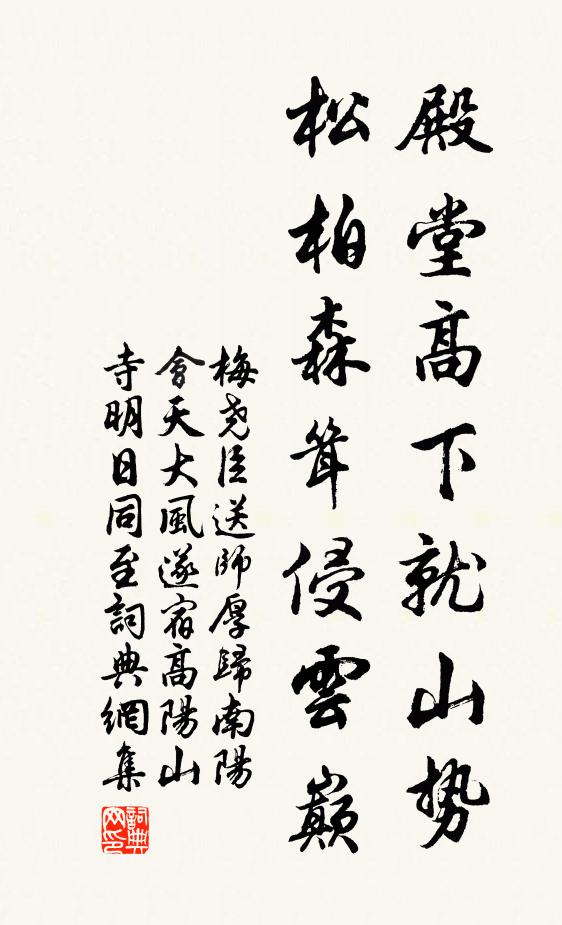 殿堂高下就山势
松柏森耸侵雲巔
梅尧臣送師厚歸南陽
會天大風遂宿高陽山
寺明日同至詞典網集
詞典
网印